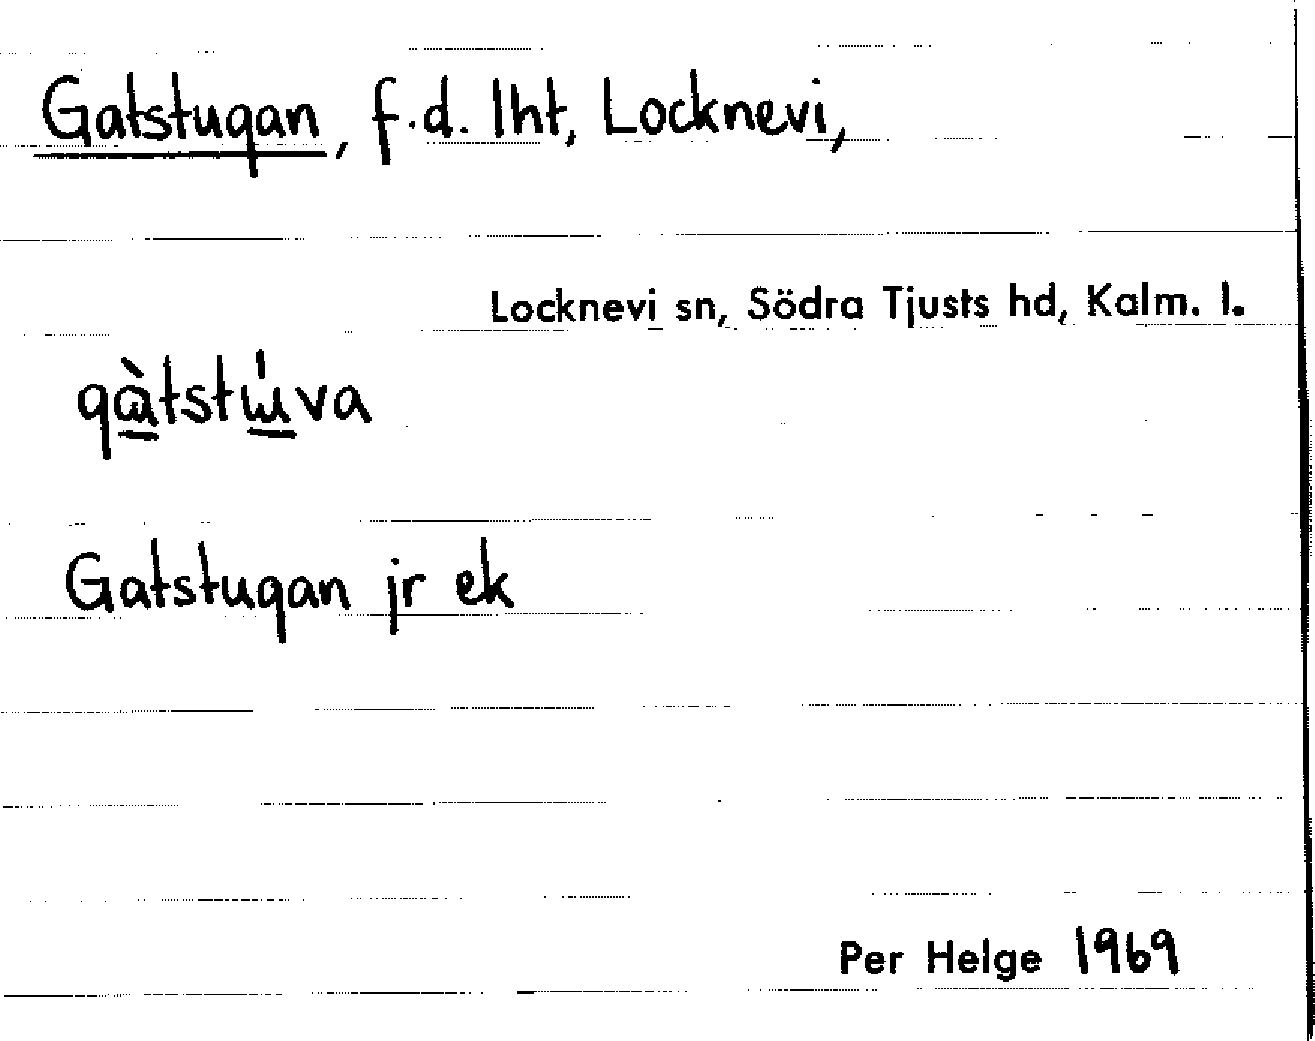 Gatstugan, f.d. lht, Locknevi,
Locknevi sn, Södra Tjusts hd, Kalm. l.
gɑ̠̀tstɯ̠́va
Gatstugan jr ek
Per Helge 1969